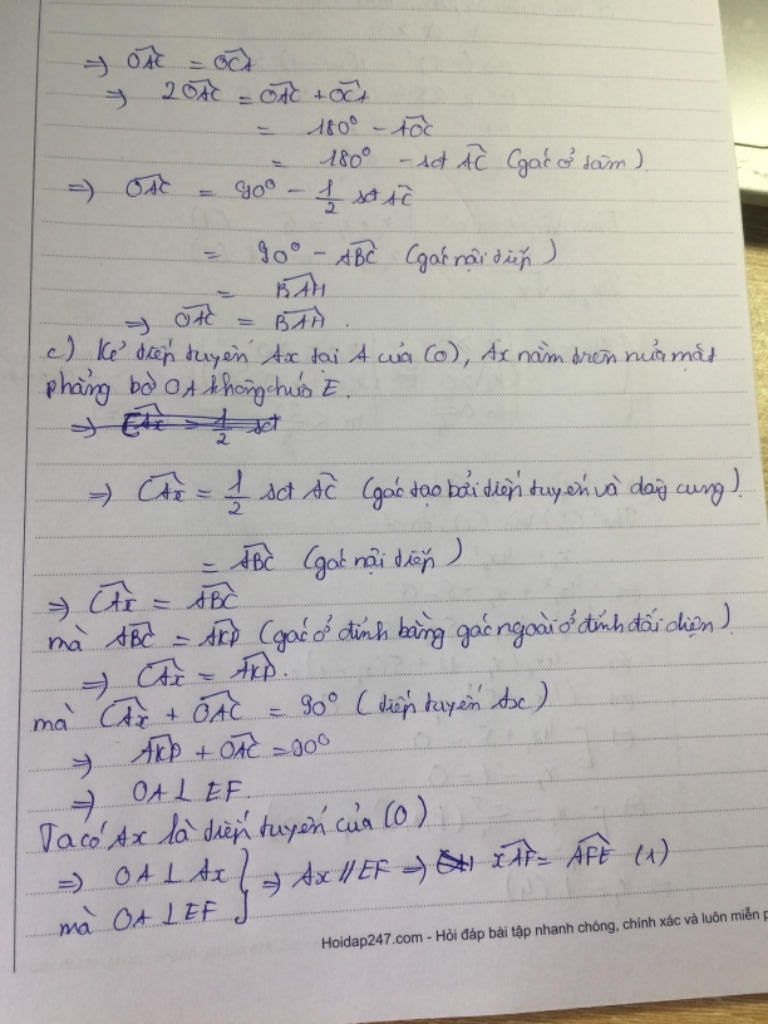 ⇒ \widehat{OAC} = \widehat{OCA}
⇒ 2\widehat{OAC} = \widehat{OAC} + \widehat{OCA}
= 180° - \widehat{AOC}
= 180° - sđ \widehat{AC} (góc ở tâm)
⇒ \widehat{OAC} = 90° - \frac{1}{2} sđ \widehat{AC}
= 90° - \widehat{ABC} (góc nội tiếp)
= \widehat{BAH}
⇒ \widehat{OAC} = \widehat{BAH}.
c) Kẻ tiếp tuyến Ax tại A của (O), Ax nằm trên nửa mặt
phẳng bờ OA không chứa E.
⇒ \widehat{CAx} = \frac{1}{2} sđ \widehat{AC} (góc tạo bởi tiếp tuyến và dây cung)
= \widehat{ABC} (góc nội tiếp)
⇒ \widehat{CAx} = \widehat{ABC}
mà \widehat{ABC} = \widehat{AKD} (góc ở đỉnh bằng góc ngoài ở đỉnh đối diện)
⇒ \widehat{CAx} = \widehat{AKD}.
mà \widehat{CAx} + \widehat{OAC} = 90° (tiếp tuyến Ax)
⇒ \widehat{AKD} + \widehat{OAC} = 90°
⇒ OA ⊥ EF.
Ta có Ax là tiếp tuyến của (O)
⇒ OA ⊥ Ax } ⇒ Ax // EF ⇒ \widehat{xAF} = \widehat{AFE} (1)
mà OA ⊥ EF
Hoidap247.com - Hỏi đáp bài tập nhanh chóng, chính xác và luôn miễn